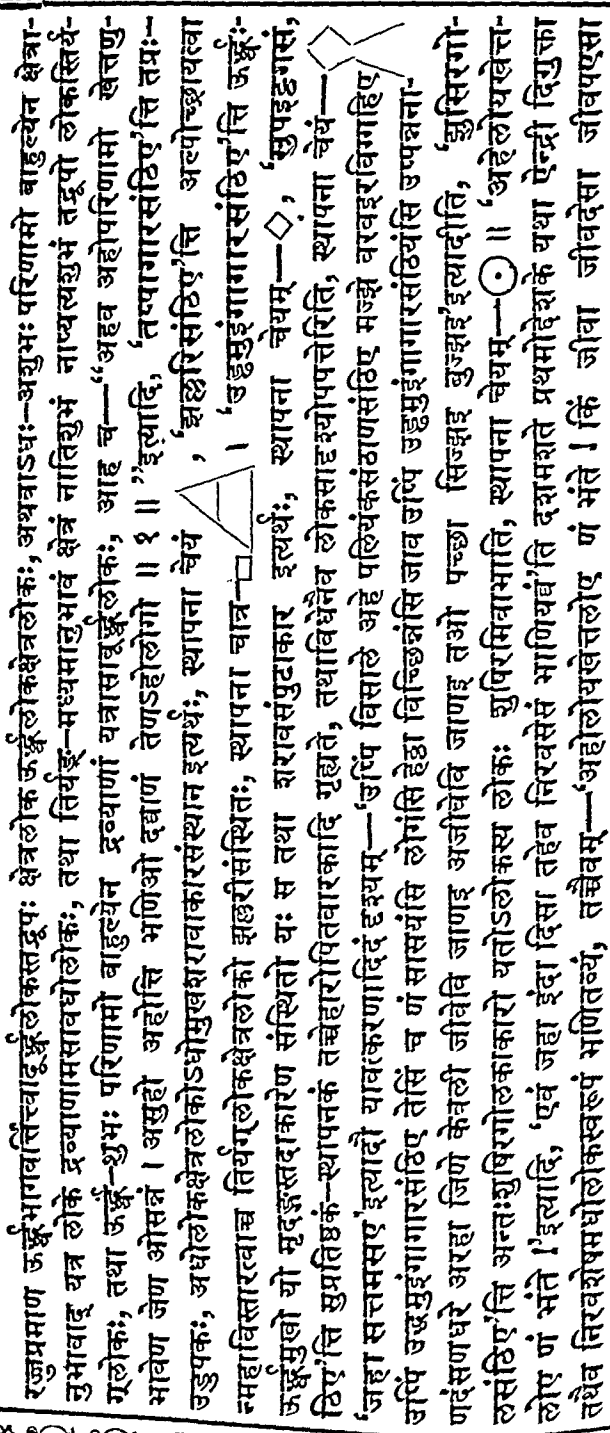 रज्जुप्रमाण ऊर्द्ध्वभागवर्त्तित्वादूर्द्ध्वलोकस्तद्रूपः क्षेत्रलोक ऊर्द्ध्वलोकक्षेत्रलोकः, अथवाऽधः—अशुभः परिणामो बाहुल्येन क्षेत्रा-
नुभावाद् यत्र लोके द्रव्याणामसावधोलोकः, तथा तिर्यङ्—मध्यमानुभावं क्षेत्रं नातिशुभं नाप्यत्यशुभं तद्रूपो लोकस्तिर्य-
ग्लोकः, तथा ऊर्द्ध्वं—शुभः परिणामो बाहुल्येन द्रव्याणां यत्रासावूर्द्ध्वलोकः, आह च—“अहव अहोपरिणामो खेत्तणु-
भावेण जेण ओसन्नं । असुहो अहोत्ति भणिओ दव्वाणं तेणऽहोलोगो ॥ १ ॥” इत्यादि, ‘तप्पागारसंठिए’त्ति तप्रः—
उडुपकः, अधोलोकक्षेत्रलोकोऽधोमुखशरावाकारसंस्थान इत्यर्थः, स्थापना चेयं , ‘झल्लरिसंठिए’त्ति अल्पोच्छ्रायत्वा
न्महाविस्तारत्वाच्च तिर्यग्लोकक्षेत्रलोको झल्लरीसंस्थितः, स्थापना चात्र— । ‘उड्ढमुइंगागारसंठिए’त्ति ऊर्द्ध्वः-
ऊर्द्ध्वमुखो यो मृदङ्गस्तदाकारेण संस्थितो यः स तथा शरावसंपुटाकार इत्यर्थः, स्थापना चेयम्—◇, ‘सुपइट्ठगसं,
ठिए’त्ति सुप्रतिष्ठकं—स्थापनकं तच्चेहारोपितवारकादि गृह्यते, तथाविधेनैव लोकसादृश्योपपत्तेरिति, स्थापना चेयं—
‘जहा सत्तमसए’ इत्यादौ यावत्करणादिदं दृश्यम्—‘उप्पिं विसाले अहे पलियंकसंठाणसंठिए मज्झे वरवइरविग्गहिए
उप्पिं उद्धमुइंगागारसंठिए तेसिं च णं सासयंसि लोगंसि हेट्ठा विच्छिन्नंसि जाव उप्पिं उड्ढमुइंगागारसंठियंसि उप्पन्नना-
णदंसणधरे अरहा जिणे केवली जीवेवि जाणइ अजीवेवि जाणइ तओ पच्छा सिज्झइ बुज्झइ’इत्यादीति, ‘झुसिरगो-
लसंठिए’त्ति अन्तःशुषिरगोलकाकारो यतोऽलोकस्य लोकः शुषिरमिवाभाति, स्थापना चेयम्—☉ ॥ ‘अहेलोयखेत्त-
लोए णं भंते !’ इत्यादि, ‘एवं जहा इंदा दिसा तहेव निरवसेसं भाणियव्वं’ति दशमशते प्रथमोद्देशके यथा ऐन्द्री दिगुक्ता
तथैव निरवशेषमधोलोकस्वरूपं भणितव्यं, तच्चैवम्—‘अहोलोयखेत्तलोए णं भंते ! किं जीवा जीवदेसा जीवपएसा